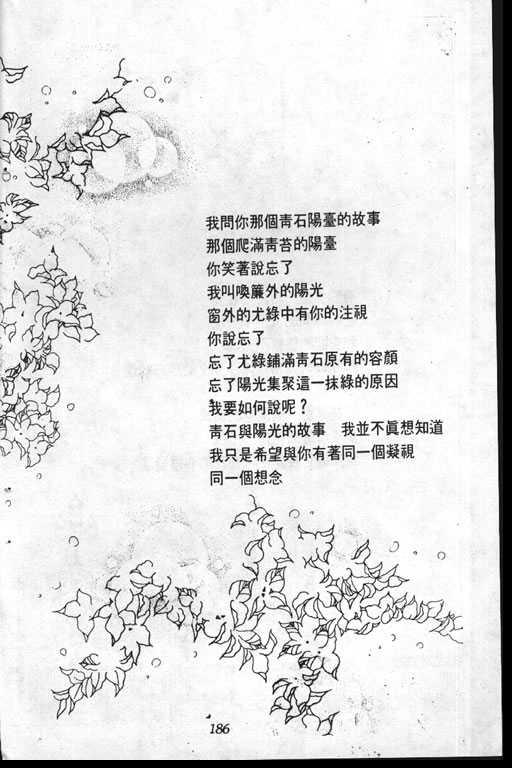 我問你那個靑石陽臺的故事
那個爬滿靑苔的陽臺
你笑著說忘了
我叫喚簾外的陽光
窗外的尤綠中有你的注視
你說忘了
忘了尤綠鋪滿靑石原有的容顏
忘了陽光集聚這一抹綠的原因
我要如何說呢？
靑石與陽光的故事　我並不眞想知道
我只是希望與你有著同一個凝視
同一個想念
186